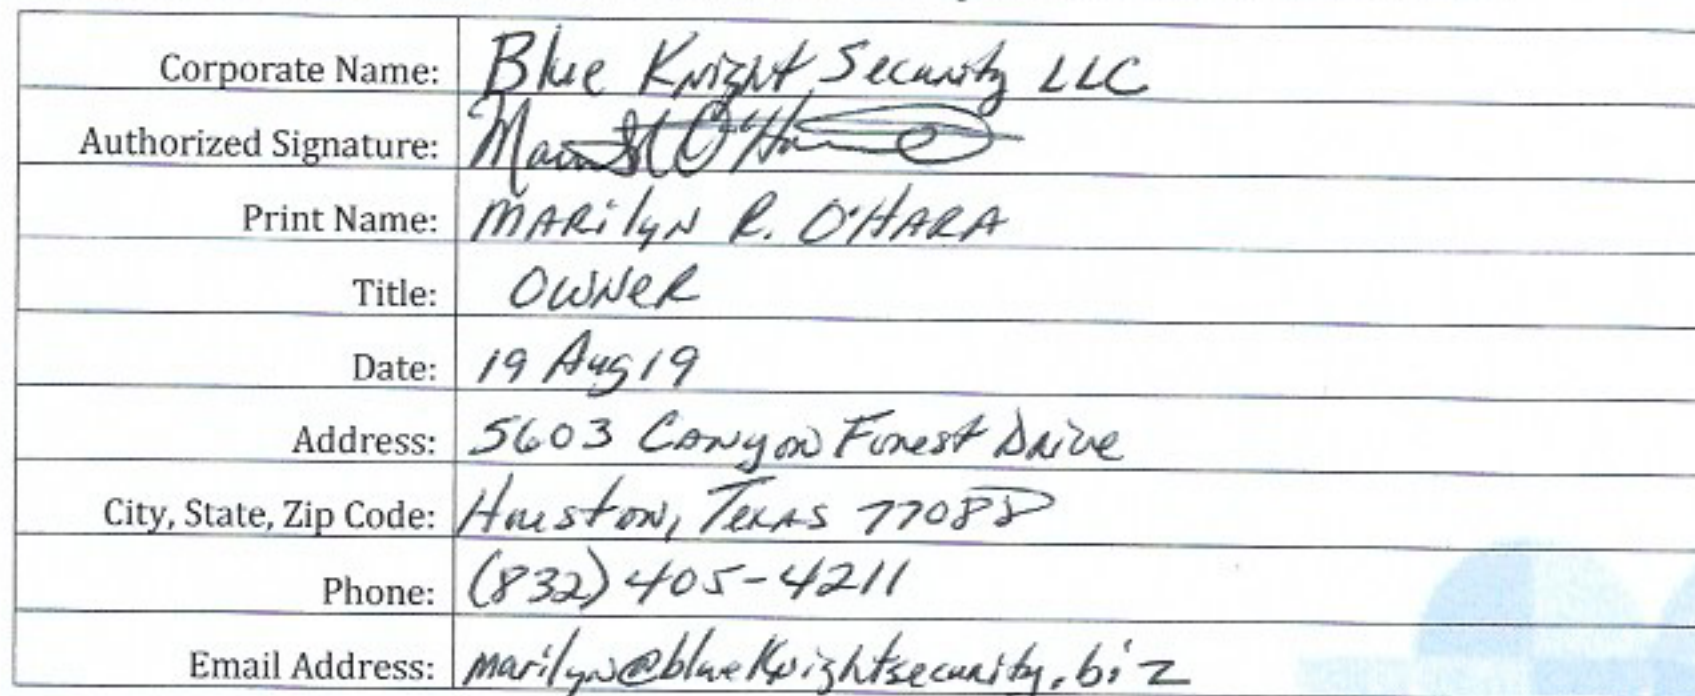 Corporate Name: Blue Knight Security LLC
Authorized Signature:
Print Name: MARilyN R. O'HARA
Title: OWNeR
Date: 19 Aug 19
Address: 5603 Canyon Forest Drive
City, State, Zip Code: Houston, Texas 77088
Phone: (832) 405-4211
Email Address: marilyn@blueknightsecurity.biz